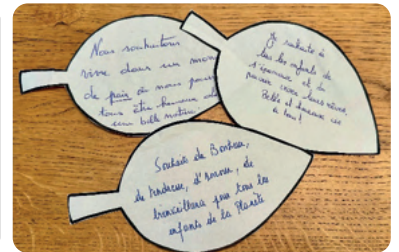 Nous souhaitons
vivre dans un mon
de paix où nous pouv
tous être heureux d
une belle
Je souhaite à
tous les enfants de
s'épanouir et de
pouvoir vivre leurs rêves.
Belle et heureuse vie
à tous !
Souhaits de Bonheur,
de tendresse, d'amour, de
bienveillance pour tous les
enfants de la Planète